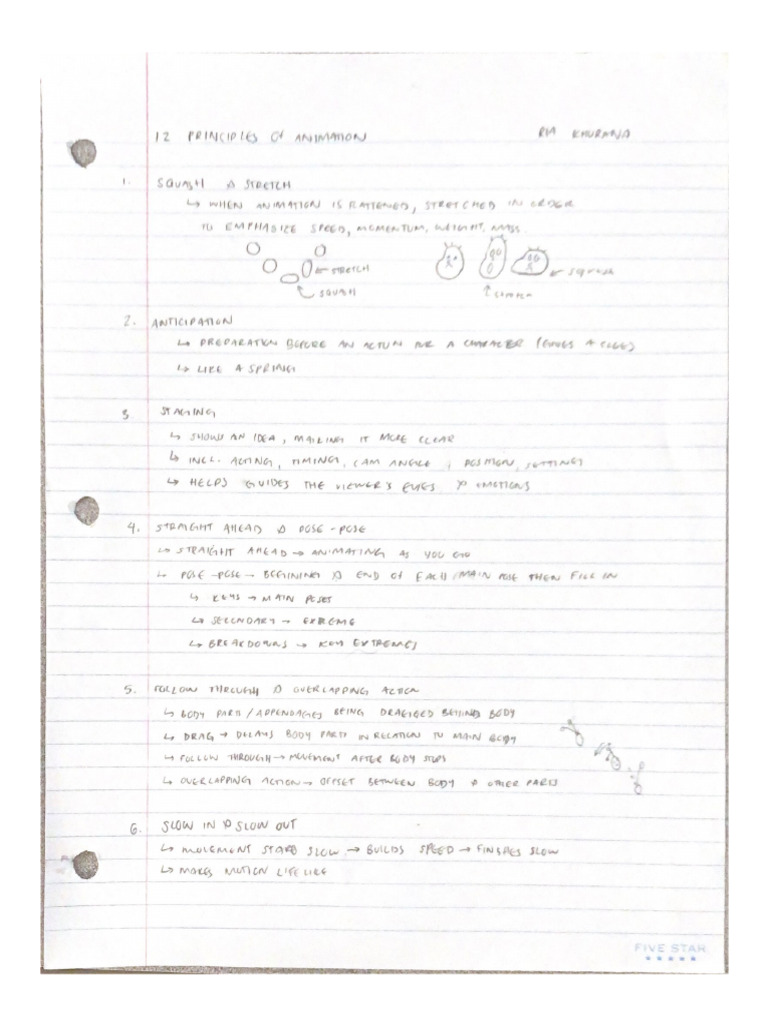 12 PRINCIPLES Of ANIMATION
RIA KHURANA
1. SQUASH & STRETCH
↳ WHEN ANIMATION IS FLATTENED, STRETCHED IN ORDER
TO EMPHASIZE SPEED, MOMENTUM, WEIGHT, MASS
← STRETCH
SQUASH
← SQUASH
2. ANTICIPATION
↳ PREPARATION BEFORE AN ACTION FOR A CHARACTER (GIVES A CLUE)
↳ LIKE A SPRING
3 STAGING
↳ SHOWS AN IDEA, MAKING IT MORE CLEAR
↳ INCL. ACTING, TIMING, CAM ANGLE & POSITION, SETTING
↳ HELPS GUIDES THE VIEWER'S EYES & EMOTIONS
4. STRAIGHT AHEAD & POSE-POSE
↳ STRAIGHT AHEAD → ANIMATING AS YOU GO
↳ POSE-POSE → BEGINING & END OF EACH/MAIN POSE THEN FILL IN
↳ KEYS → MAIN POSES
↳ SECONDARY → EXTREME
↳ BREAKDOWNS → KEY EXTREMES
5. FOLLOW THROUGH & OVERLAPPING ACTION
↳ BODY PARTS/APPENDAGES BEING DRAGGED BEHIND BODY
↳ DRAG → DELAYS BODY PARTS IN RELATION TO MAIN BODY
↳ FOLLOW THROUGH → MOVEMENT AFTER BODY STOPS
↳ OVERLAPPING ACTION → OFFSET BETWEEN BODY & OTHER PARTS
6. SLOW IN & SLOW OUT
↳ MOVEMENT STARTS SLOW → BUILDS SPEED → FINISHES SLOW
↳ MAKES MOTION LIFELIKE
FIVE STAR